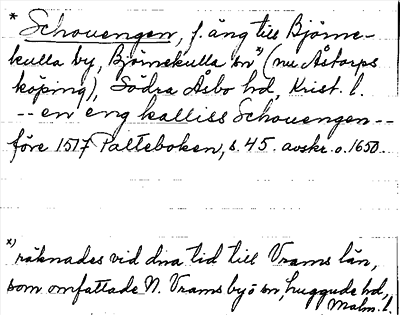 * Schouengen, f. äng till Björne-
kulla by, Björnekulla sn*) (nu Åstorps
köping), Södra Åsbo hd, Krist. l.
-- en eng kalliss Schouengen --
före 1517 Palteboken, s. 45. avskr. o. 1650.
*) räknades vid dna tid till Vrams län,
som omfattade N. Vrams by o sn, Luggude hd,
Malm. l.